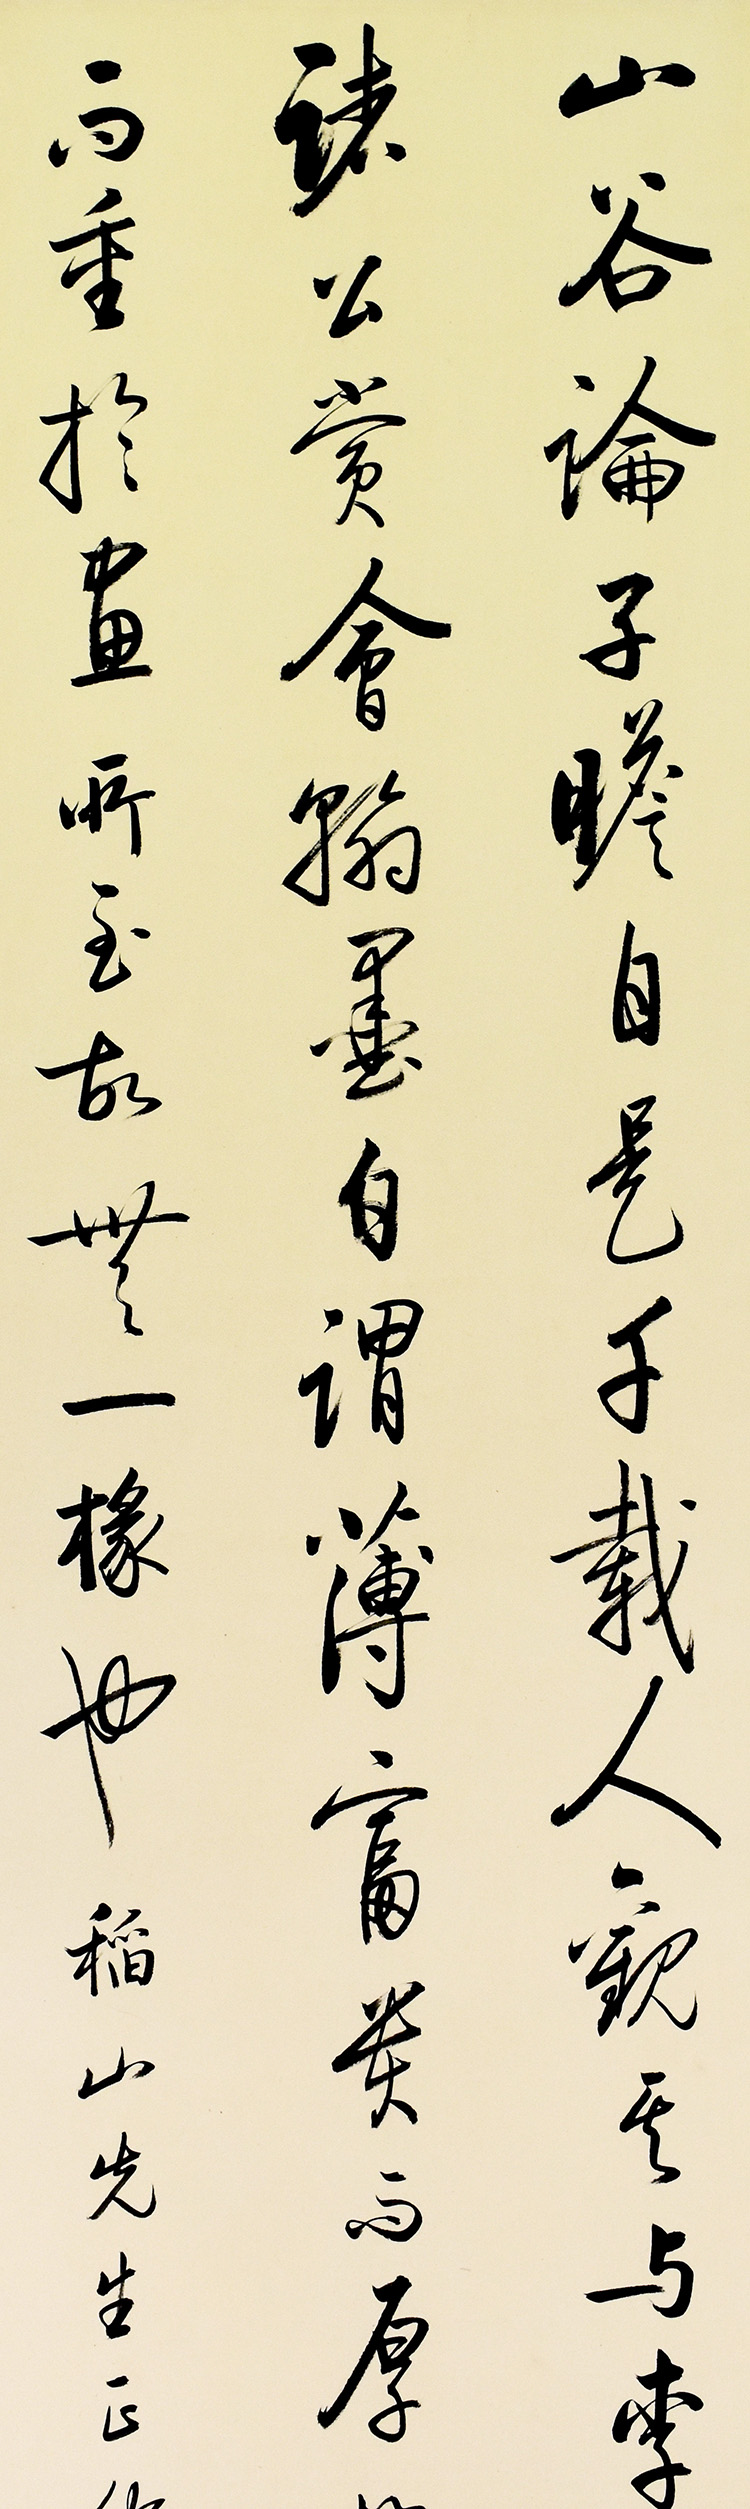 山谷論子瞻自是千載人觀其与李
諸公賞會翰墨自謂薄富貴而厚
而重於畫所至故無一椽也稻山先生正